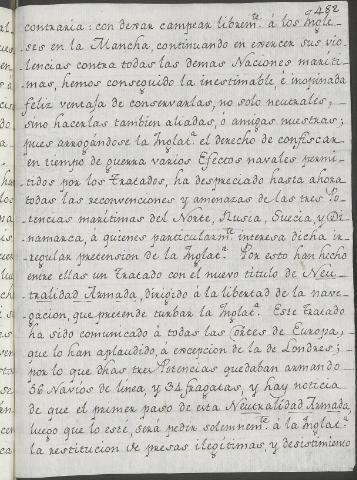 482
contraria: con dexar campear librem.te á los Yngle-
ses en la Mancha, continuando en exercer sus vio-
lencias contra todas las demas Naciones mariti-
mas, hemos conseguido la inestimable, é inopinada
feliz ventaja de conservarlas, no solo neutrales,
sino hacerlas tambien aliadas, ó amigas nuestras;
pues arrogándose la Ynglat.a el derecho de confiscar
en tiempo de guerra varios Efectos navales permi-
tidos por los Tratados, ha despreciado hasta ahora
todas las reconvenciones y amenazas de las tres Po-
tencias marítimas del Norte, Rusia, Suecia, y Di-
namarca, á quienes particularm.te interesa dicha ir-
regular pretension de la Ynglat.a Por esto han hecho
entre ellas un Tratado con el nuevo titulo de Neu-
tralidad Armada, dirigido á la libertad de la nave-
gacion, que pretende turbar la Ynglat.a Este tratado
ha sido comunicado á todas las Cortes de Europa,
que lo han aplaudido, á excepcion de la de Londres;
por lo que dhas tres Potencias quedaban armando
56 Navíos de línea, y 34 fragatas, y hay noticia
de que el primer paso de esta Neutralidad Armada,
luego que lo esté, será pedir solemnem.te á la Ynglat.a
la restitucion de presas ilegitimas, y desistimiento